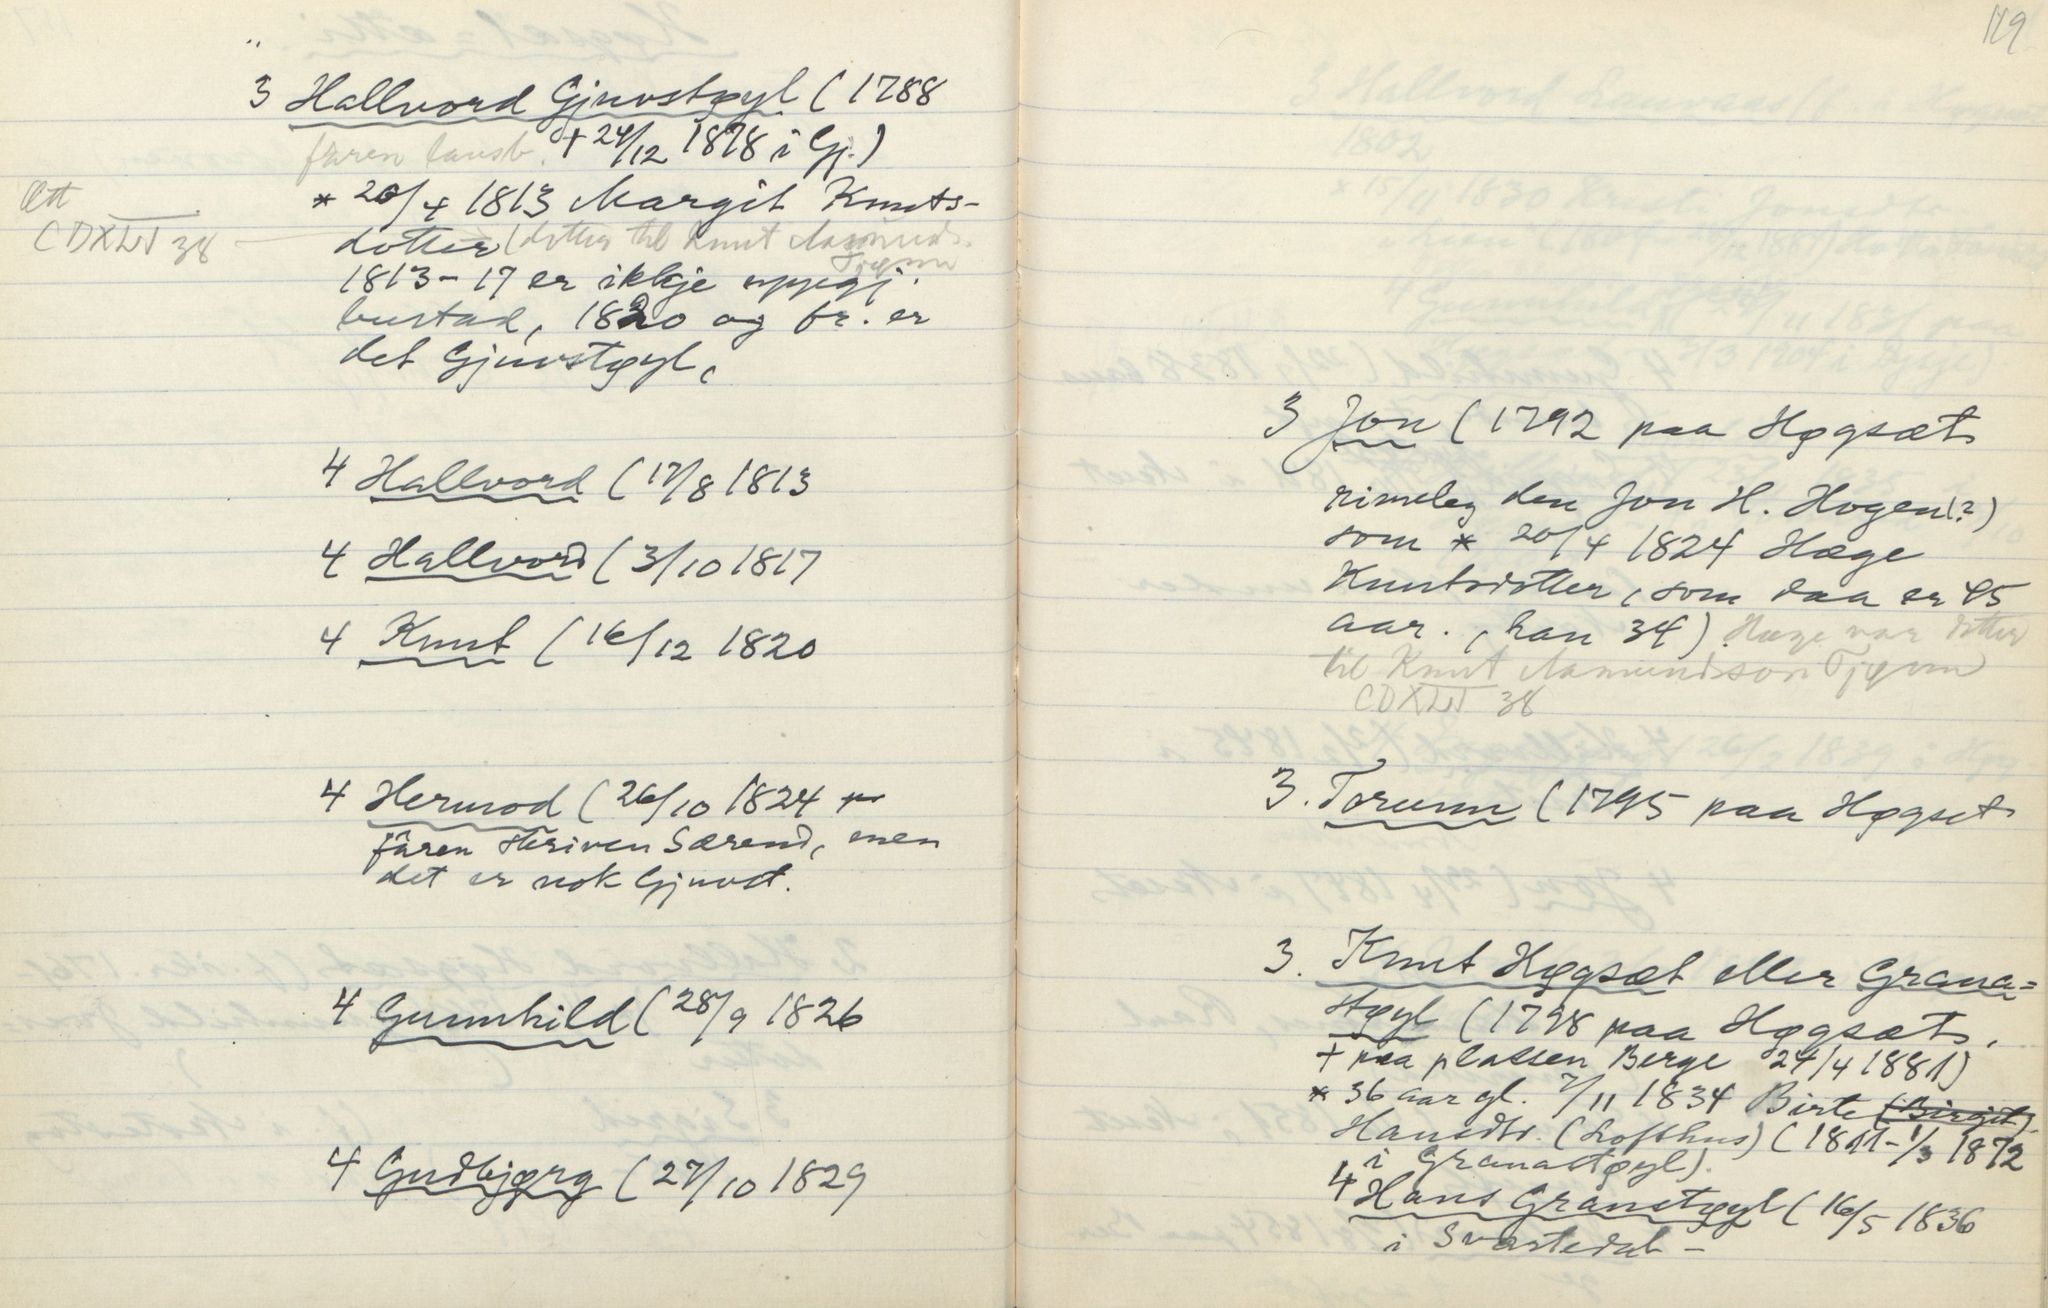 3 Hallvord Gjuvstøyl (1788
+ 24/12 1878 i Gj.)
* 20/4 1813 Margit Knuts-
dotter (dotter til Knut Aamunds.
Tjønn
Ætt
38
1813-17 er ikkje uppgj.
bustad, 1820 og fr. er
det Gjuvstøyl.
4 Hallvord (17/8 1813
4 Hallvord (3/10 1817
4 Knut (16/12 1820
4 Hermod (26/10 1824
faren skriven Særend, men
det er nok Gjuvst.
4 Gunnhild (28/9 1826
4 Gudbjørg (27/10 1829
119
3 Jon (1792 paa Høgsæt
rimeleg den Jon H. Hogen (?)
som * 20/4 1824 Hæge
Knutsdotter, som daa er 45
aar., han 34). Hæge var dotter
til Knut Aamundson Tjønn
38
3. Torunn (1795 paa Høgset
3. Knut Høgsæt eller Grana=
støyl (1798 paa Høgsæt,
+ paa plassen Berge 24/4 1881)
* 36 aar gl. 7/11 1834 Birte (Birgit)
Hansdtr. (Lofthus) (1811-1/3 1872
i Granastøyl).
4 Hans Granstøyl (16/5 1836
i Svartedal -